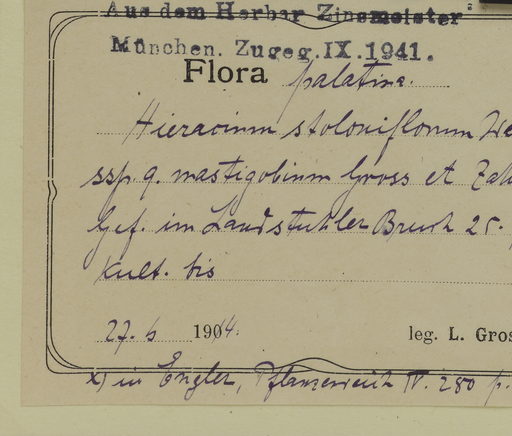 Aus dem Herbar Zinsmeister
München. Zugeg. IX. 1941.
Flora palatina.
Hieracium stoloniflorum
ssp. 9. mastigobium Gross et Zah
Gef. im Landstuhler Bruch 25.
Kult. bis
27. 6 1904.
leg. L. Gros
x) in Engler, Pflanzenreich IV. 280 p.